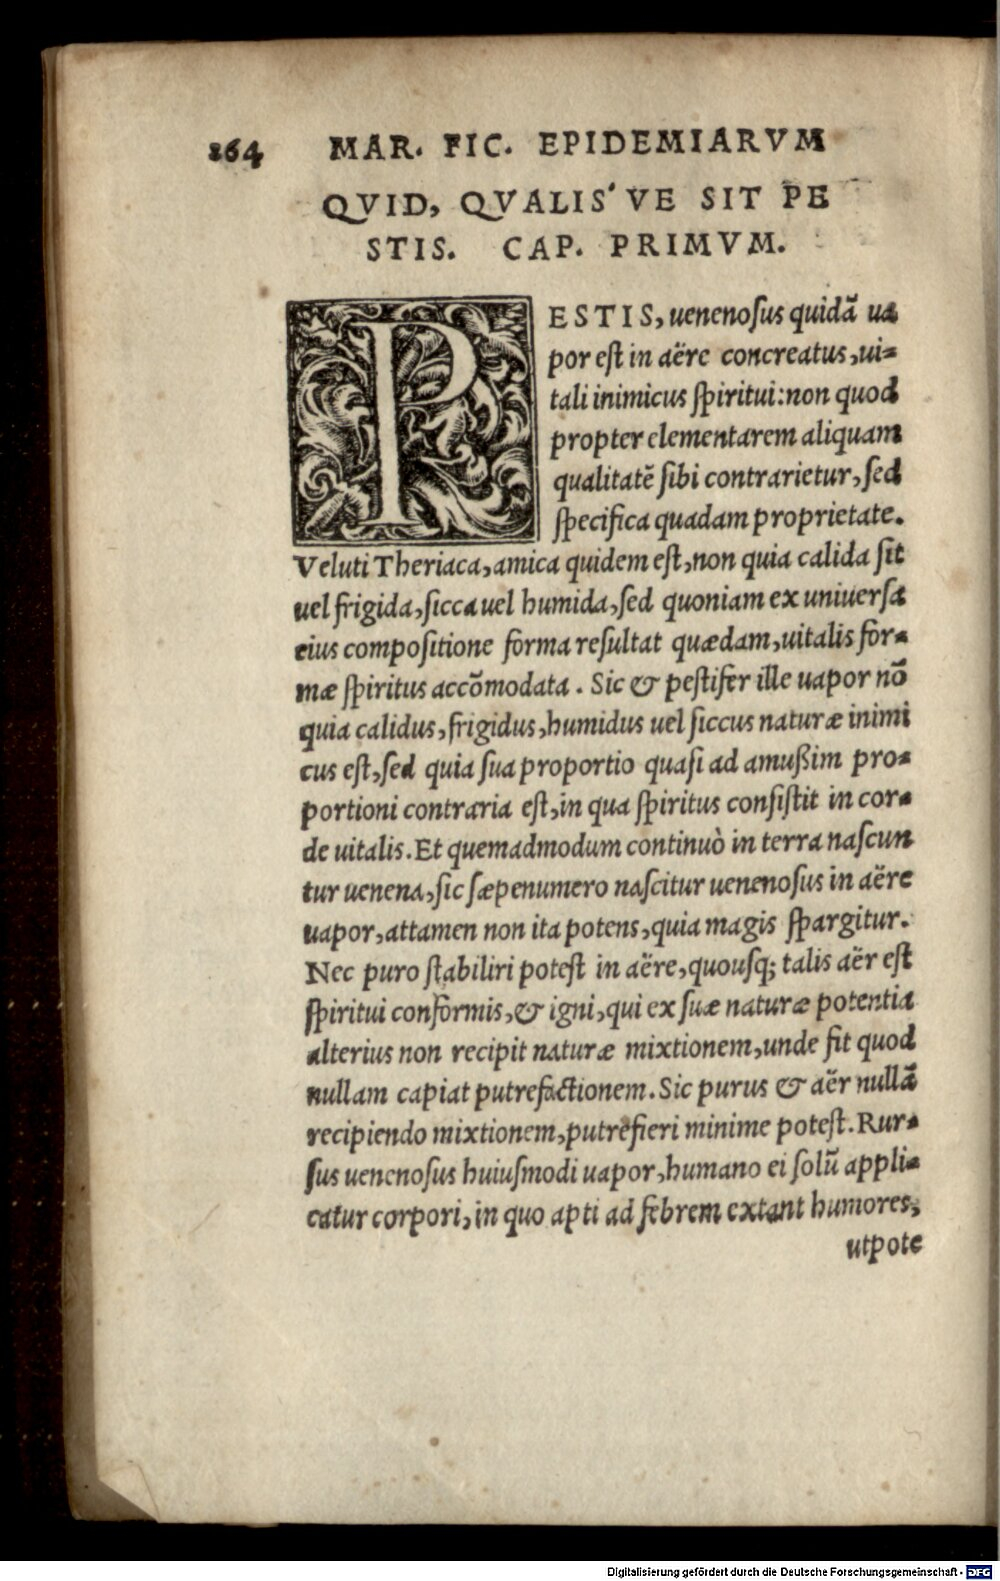 264 MAR. FIC. EPIDEMIARVM
QVID, QVALIS'VE SIT PE
STIS. CAP. PRIMVM.
PESTIS, uenenoſus quidã ua
por eſt in aëre concreatus, ui=
tali inimicus ſpiritui: non quod
propter elementarem aliquam
qualitatẽ ſibi contrarietur, ſed
ſpecifica quadam proprietate.
Veluti Theriaca, amica quidem eſt, non quia calida ſit
uel frigida, ſicca uel humida, ſed quoniam ex uniuerſa
eius compoſitione forma reſultat quædam, uitalis for=
mæ ſpiritus accõmodata. Sic & peſtifer ille uapor nõ
quia calidus, frigidus, humidus uel ſiccus naturæ inimi
cus eſt, ſed quia ſua proportio quaſi ad amußim pro=
portioni contraria eſt, in qua ſpiritus conſiſtit in cor=
de uitalis. Et quemadmodum continuò in terra naſcun
tur uenena, ſic ſæpenumero naſcitur uenenoſus in aëre
uapor, attamen non ita potens, quia magis ſpargitur.
Nec puro ſtabiliri poteſt in aëre, quouſq; talis aër eſt
ſpiritui conformis, & igni, qui ex ſuæ naturæ potentia
alterius non recipit naturæ mixtionem, unde fit quod
nullam capiat putrefactionem. Sic purus & aër nullã
recipiendo mixtionem, putrefieri minime poteſt. Rur=
ſus uenenoſus huiuſmodi uapor, humano ei ſolũ appli=
catur corpori, in quo apti ad febrem extant humores,
utpote
Digitalisierung gefördert durch die Deutsche Forschungsgemeinschaft - DFG